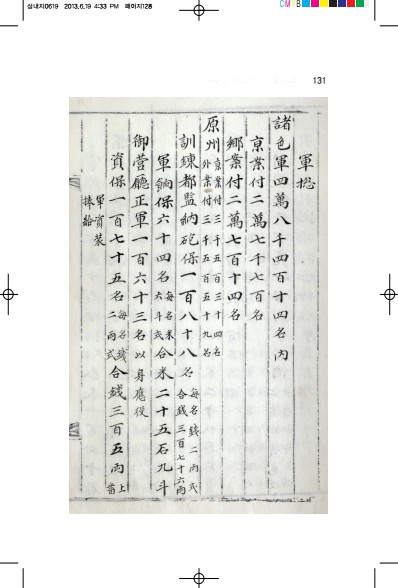 삼내지0619 2013.6.19 4:33 PM 페이지128
131
軍摠
諸色軍四萬八千四百十四名內
京案付二萬七千七百名
鄕案付二萬七百十四名
原州京案付三千五百三十四名
外案付三千五百五十九名
訓練都監納砲保一百八十八名每名錢二兩式
合錢三百七十六兩
軍餉保六十四名每名米六斗式合米二十五石九斗
御營廳正軍一百六十三名以身應役
資保一百七十五名每名錢二兩式合錢三百五兩上番
軍資裝
捧給